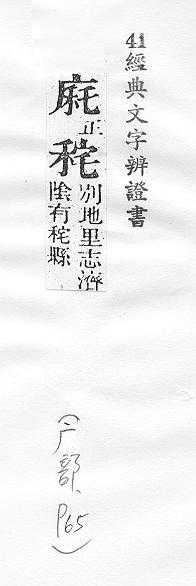 41經典文字辨證書
㢉正
秺別地里志濟
陰有秺縣
(广部、P65)